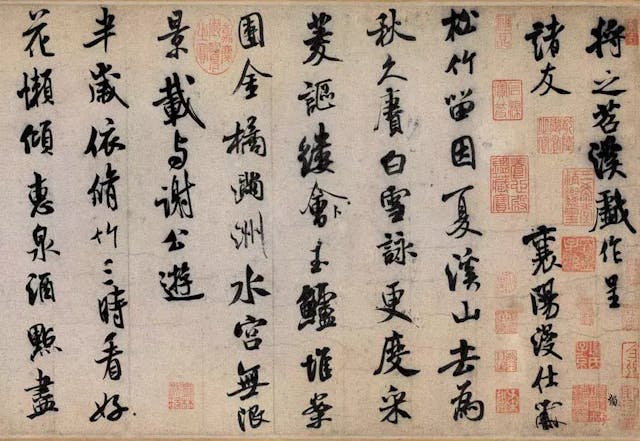 將之苕溪戲作呈
諸友
襄陽漫仕黻
松竹留因夏溪山去為
秋久賡白雪詠更度采
菱謳縷會玉鱸堆案
團金橘滿洲水宮無限
景載與謝公遊
半歲依脩竹三時看好
花懶傾惠泉酒點盡